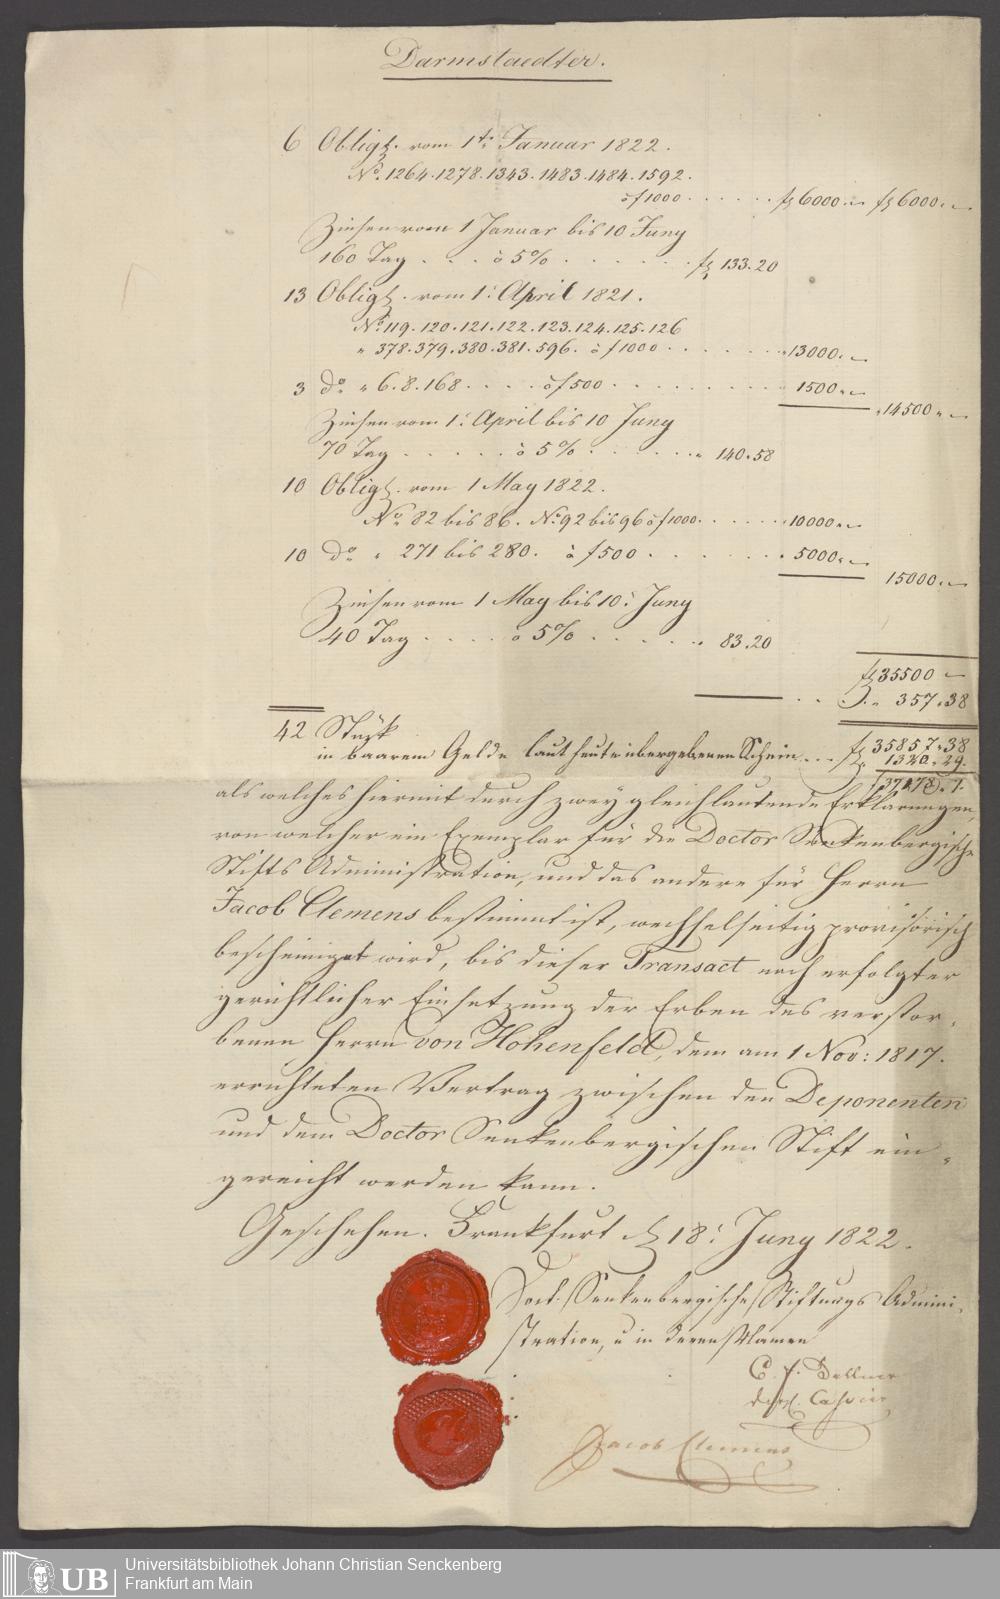 Darmstaedter.
6 Obligt. vom 1t Januar 1822.
No. 1264. 1278. 1343. 1483. 1484. 1592.
à f 1000 . . . . . . fl 6000. — fl 6000. —
Zinsen vom 1 Januar bis 10 Juny
160 Tag . . . à 5% . . . . . . fl 133.20
13 Obligt. vom 1t April 1821.
No. 119. 120. 121. 122. 123. 124. 125. 126
" 378. 379. 380. 381. 596. à f 1000 . . . . . . " 13000. —
3 do " 6. 8. 168 . . . . à f 500 . . . . . . . . . " 1500. —
" 14500 " —
Zinsen vom 1t April bis 10 Juny
70 Tag . . . . . à 5% . . . . . . " 140.58
10 Obligt. vom 1 May 1822.
No. 82 bis 86. No. 92 bis 96 à f 1000 . . . . . . " 10000 " —
10 do " 271 bis 280. à f 500 . . . . . . " 5000. —
15000. —
Zinsen vom 1 May bis 10t Juny
40 Tag . . . . à 5% . . . . . " 83.20
fl 35500 —
" 357.38
42 Stück
fl 35857.38
in baarem Gelde laut heute übergebenen Schein . . . fl. 1320.29.
f 37178. 7.
als welches hiermit durch zwey gleichlautende Erklärungen,
von welcher ein Exemplar für die Doctor Senkenbergische
Stifts Administration, und das andere für Herrn
Jacob Clemens bestimmt ist, wechselseitig provisorisch
bescheiniget wird, bis dieser Transact nach erfolgter
gerichtlicher Einsetzung der Erben des verstor-
benen Herrn von Hohenfeld, dem am 1 Nov: 1817.
errichteten Vertrag zwischen den Deponenten
und dem Doctor Senkenbergischen Stift ein-
gereicht werden kann.
Geschehen. Frankfurt d 18t Juny 1822.
Doct. Senkenbergische Stiftungs Admini-
stration, u in deren Namen
C. F.
Cassier
Jacob Clemens
UB Universitätsbibliothek Johann Christian Senckenberg
Frankfurt am Main